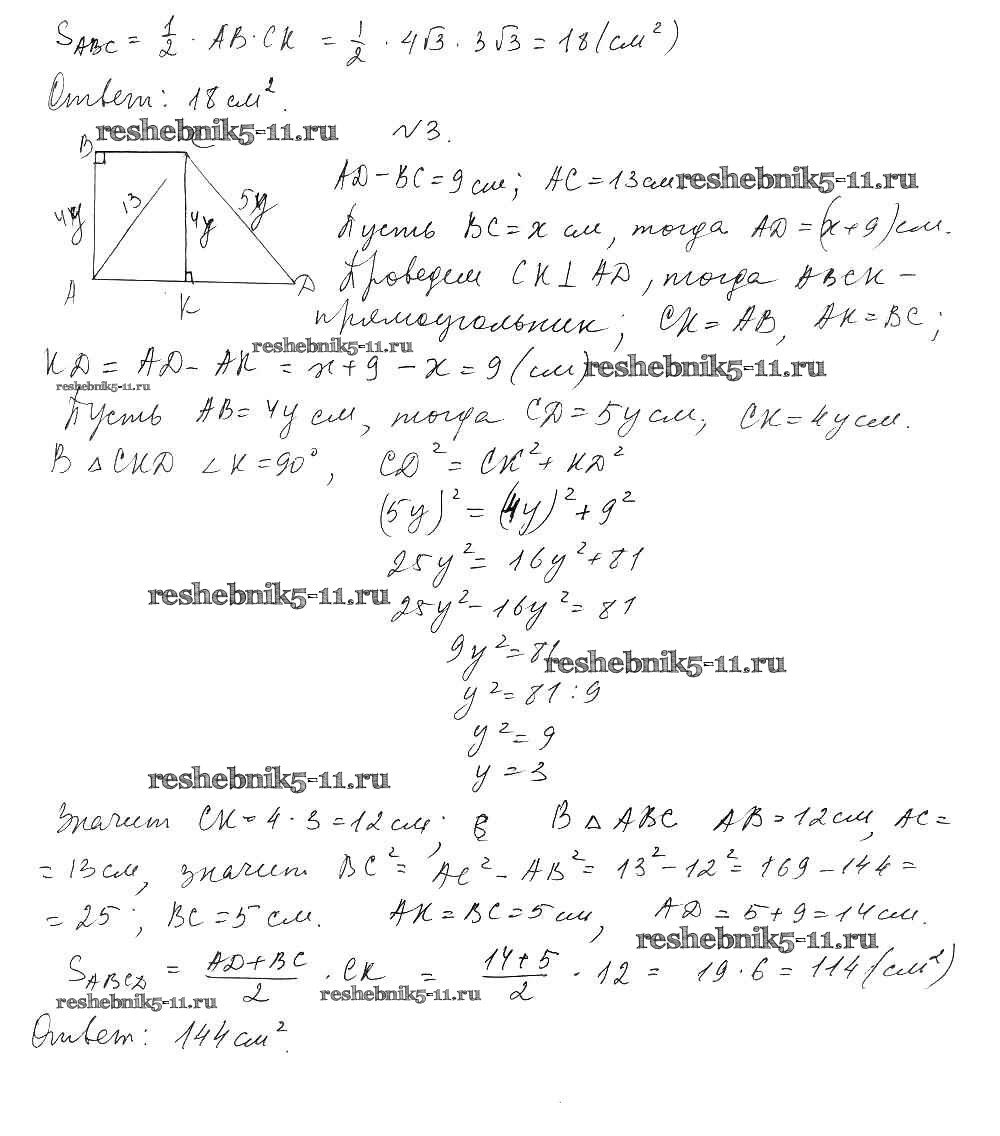 S_ABC = 1/2 · AB · CK = 1/2 · 4√3 · 3√3 = 18 (см²)
Ответ: 18 см².
reshebnik5-11.ru
№3.
B C
AD – BC = 9 см; AC = 13 см reshebnik5-11.ru
4y 13 4y 5y
Пусть BC = x см, тогда AD = (x+9) см.
A K D
Проведем CK ⊥ AD, тогда ABCK –
прямоугольник; CK = AB, AK = BC;
reshebnik5-11.ru
KD = AD – AK = x + 9 – x = 9 (см) reshebnik5-11.ru
reshebnik5-11.ru
Пусть AB = 4y см, тогда CD = 5y см, CK = 4y см.
В △CKD ∠K = 90°, CD² = CK² + KD²
(5y)² = (4y)² + 9²
25y² = 16y² + 81
reshebnik5-11.ru
25y² – 16y² = 81
9y² = 81
reshebnik5-11.ru
y² = 81 : 9
y² = 9
y = 3
reshebnik5-11.ru
Значит CK = 4 · 3 = 12 см; В △ABC AB = 12 см, AC =
= 13 см, значит BC² = AC² – AB² = 13² – 12² = 169 – 144 =
= 25; BC = 5 см. AK = BC = 5 см, AD = 5 + 9 = 14 см.
reshebnik5-11.ru
S_ABCD = (AD + BC)/2 · CK = (14 + 5)/2 · 12 = 19 · 6 = 114 (см²)
reshebnik5-11.ru reshebnik5-11.ru
Ответ: 144 см².